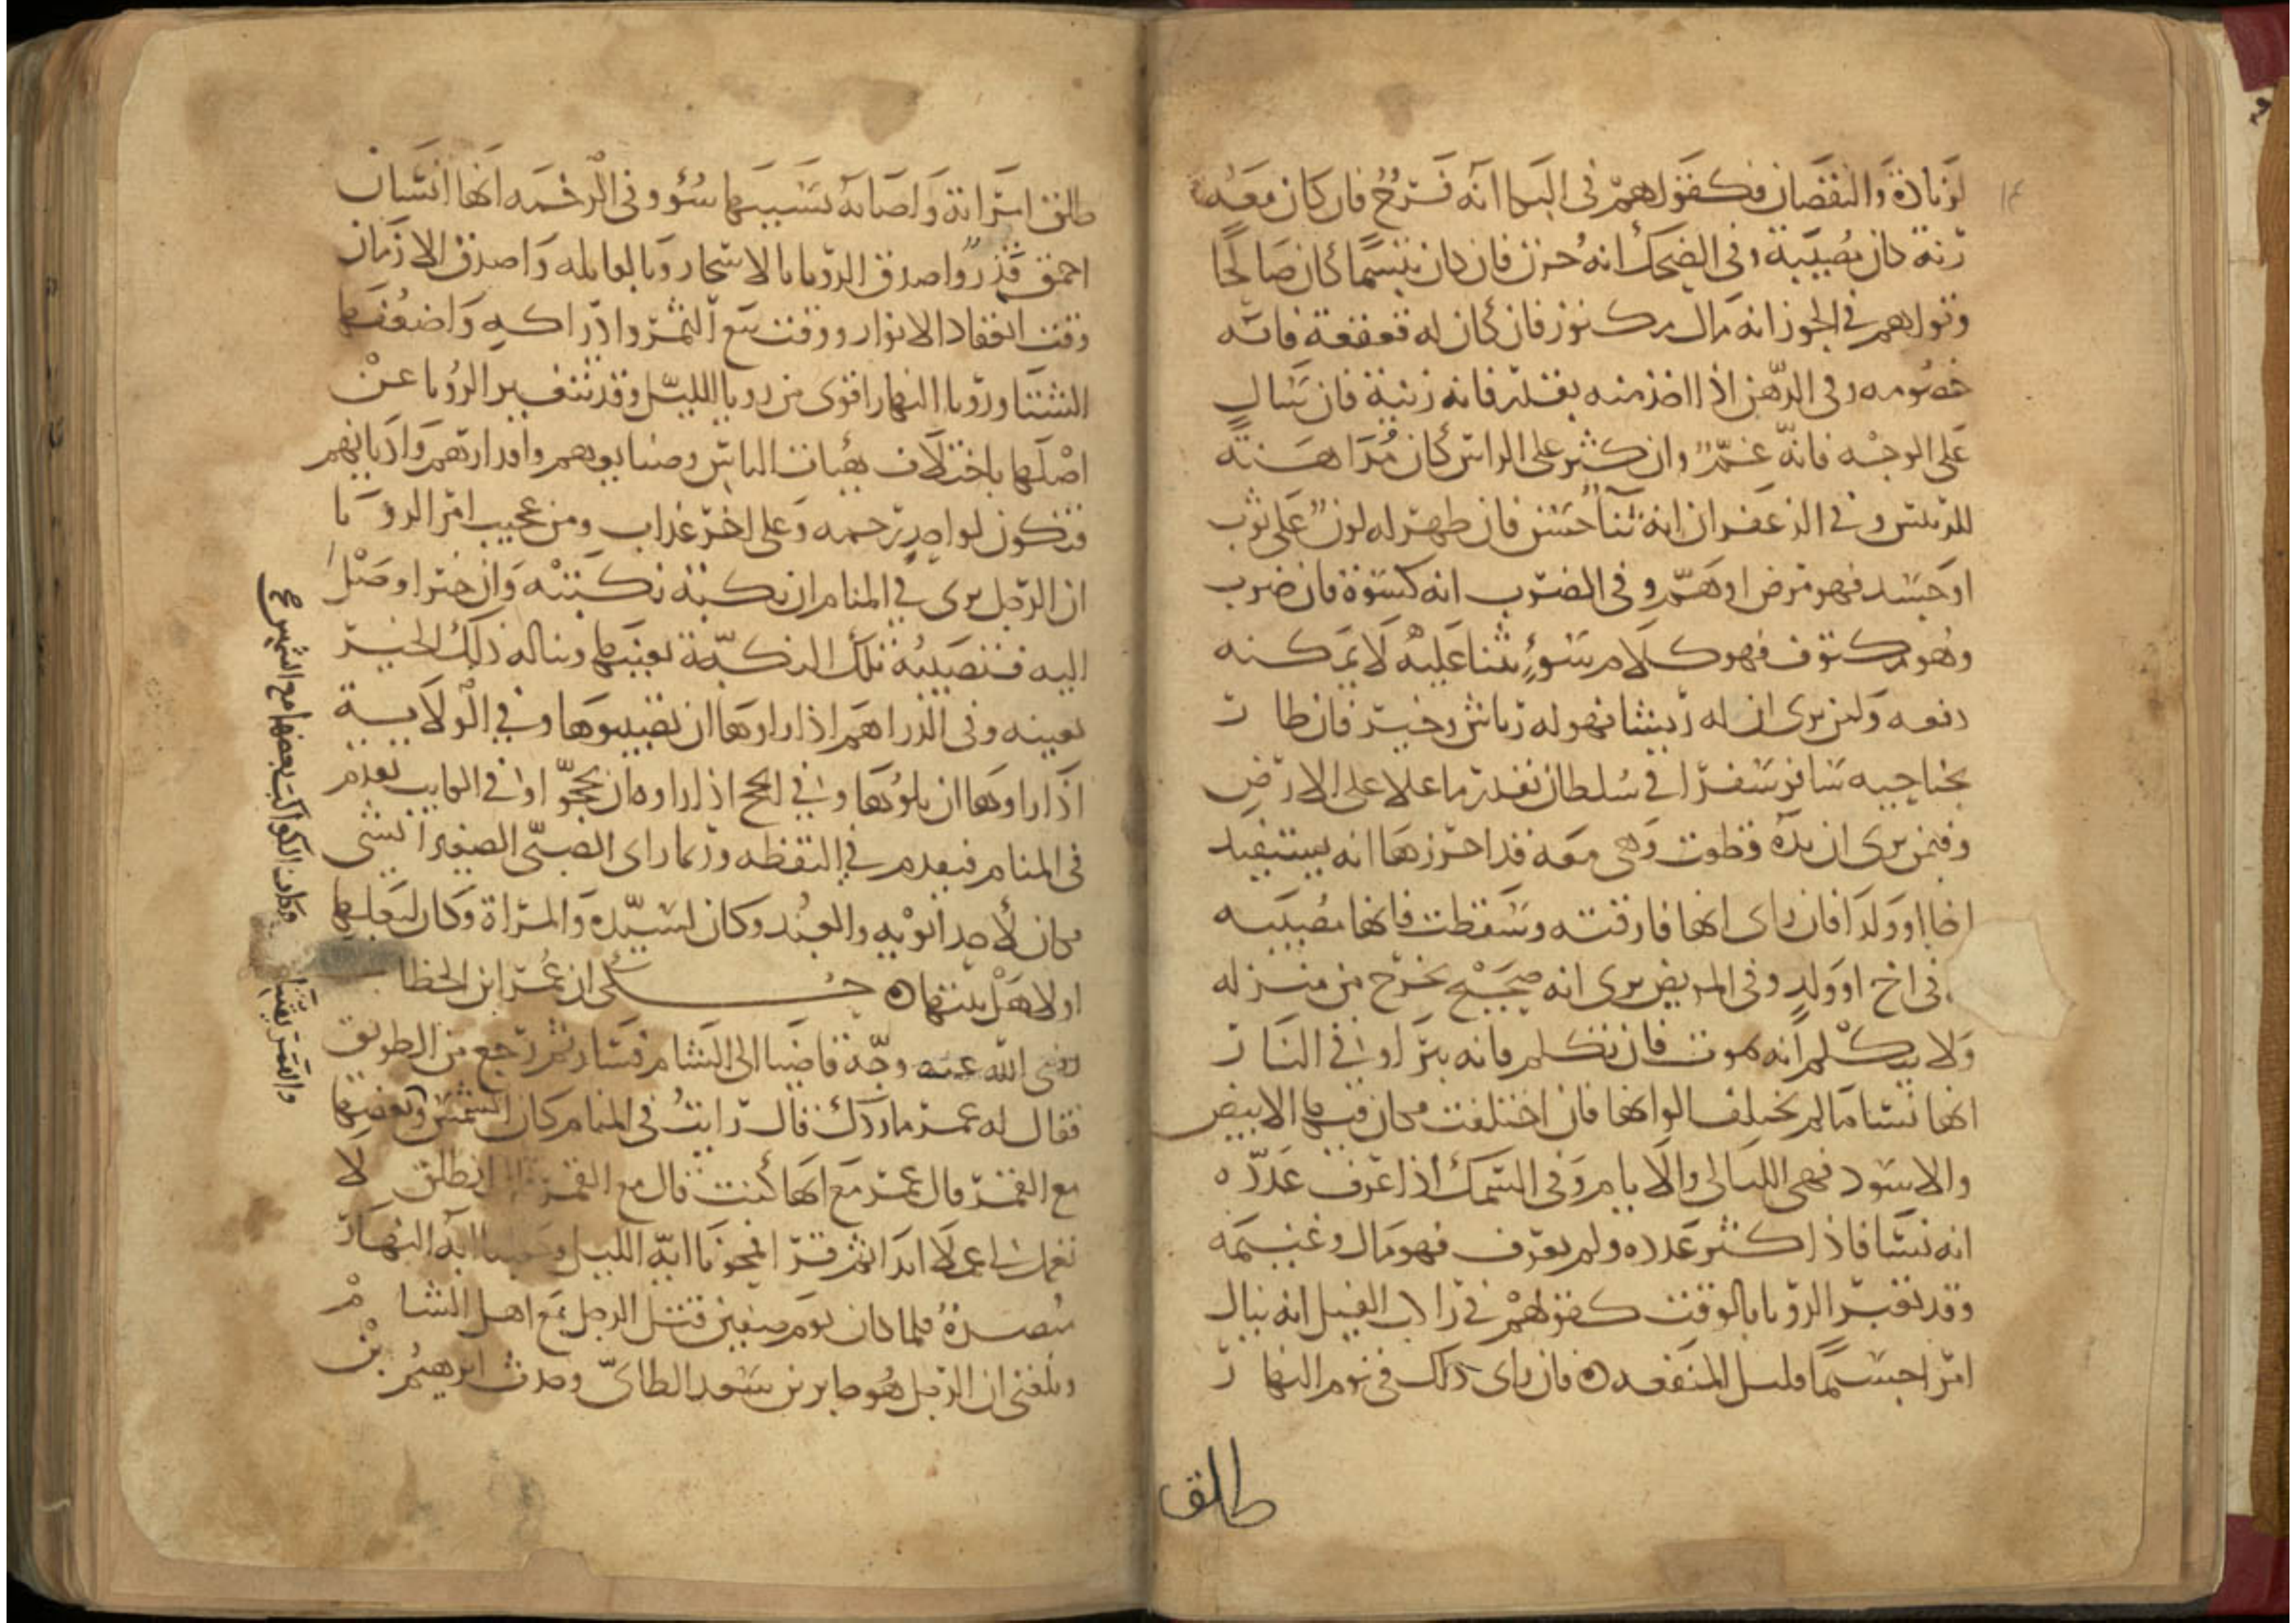 لزيادة والنقصان فكقولهم في البكا انه فرح فان كان معه
رنة كان مصيبة وفي الضحك انه حزن فان كان تبسما كان صالحا
وقولهم في الجوز انه مال مكنوز فان كان له قعقعة فانه
خصومه وفي الدهن اذا اخذ منه بقدر فانه زينة فان سال
على الوجه فانه غم وان كثر على الراس كان مداهنة
للرئيس وفي الزعفران انه ثنا حسن فان ظهر له لون على ثوب
او جسد فهو مرض او هم وفي الضرب انه كسوة فان ضرب
وهو مكتوف فهو كلام سوء يثنا عليه لا يمكنه
دفعه ولمن يرى ان له ريشا فهو له رياش وخير فان طار
بجناحيه سافر سفرا في سلطان بقدر ما علا على الارض
وفيمن يرى ان يده قطعت وهي معه قد احرزها انه يستفيد
اخا او ولدا فان راى انها فارقته وسقطت فانها مصيبه
في اخ او ولد وفي المريض يرى انه صحيح يخرج من منزله
ولا يتكلم انه يموت فان تكلم فانه يبرا وفي الفار
انها نسا ما لم يختلف الوانها فان اختلفت فكان فيها الابيض
والاسود فهي الليالي والايام وفي السمك اذا عرف عدده
انه نسا فاذا كثر عدده ولم يعرف فهو مال وغنيمه
وقد تغير الرؤيا بالوقت كقولهم في راكب الفيل انه ينال
امرا جسيما قليل المنفعه فان راى ذلك في نوم النهار
طلق
طلق امراته واصابه بسببها سوء وفي الرخمه انها انسان
احمق قذر واصدق الرؤيا بالاسحار وبالقايله واصدق الازمان
وقت انعقاد الانوار ووقت ينع الثمر وادراكه واضعفها
الشتا ورؤيا النهار اقوى من رويا الليل وقد تتغير الرؤيا عن
اصلها باختلاف هيات الناس وصنايعهم واقدارهم واديانهم
فتكون لواحد رحمه وعلى اخر عذاب ومن عجيب امر الرؤيا
ان الرجل يرى في المنام ان نكبة نكبته وان خيرا وصل
اليه فتصيبه تلك النكبة بعينها ويناله ذلك الخير
بعينه وفي الدراهم اذا راوها ان يصيبوها وفي الولاية
اذا راوها ان يلوها وفي الحج اذا راوه ان يحجوا وفي الغايب يقدم
في المنام فيقدم في اليقظه وربما راى الصبي الصغير الشي
فكان لاحد ابويه والعبد وكان لسيده والمراة وكان لبعلها
او لاهل بيتها حكي ان عمر ابن الخطاب
رضي الله عنه وجه قاضيا الى الشام فسار ثم رجع من الطريق
فقال له عمر ما ردك قال رايت في المنام كان الشمس وبعضها
مع القمر قال عمر مع ايها كنت قال مع القمر قال انطلق لا
تعمل لي عملا ابدا ثم قرا فمحونا اية الليل وجعلنا اية النهار
مبصرة فلما كان يوم صفين قتل الرجل مع اهل الشام
وبلغني ان الرجل هو حابر بن سعد الطائي وحدث ابرهيم بن
وكان الكواكب بعضها مع الشمس صح
والقمر يقتتلا